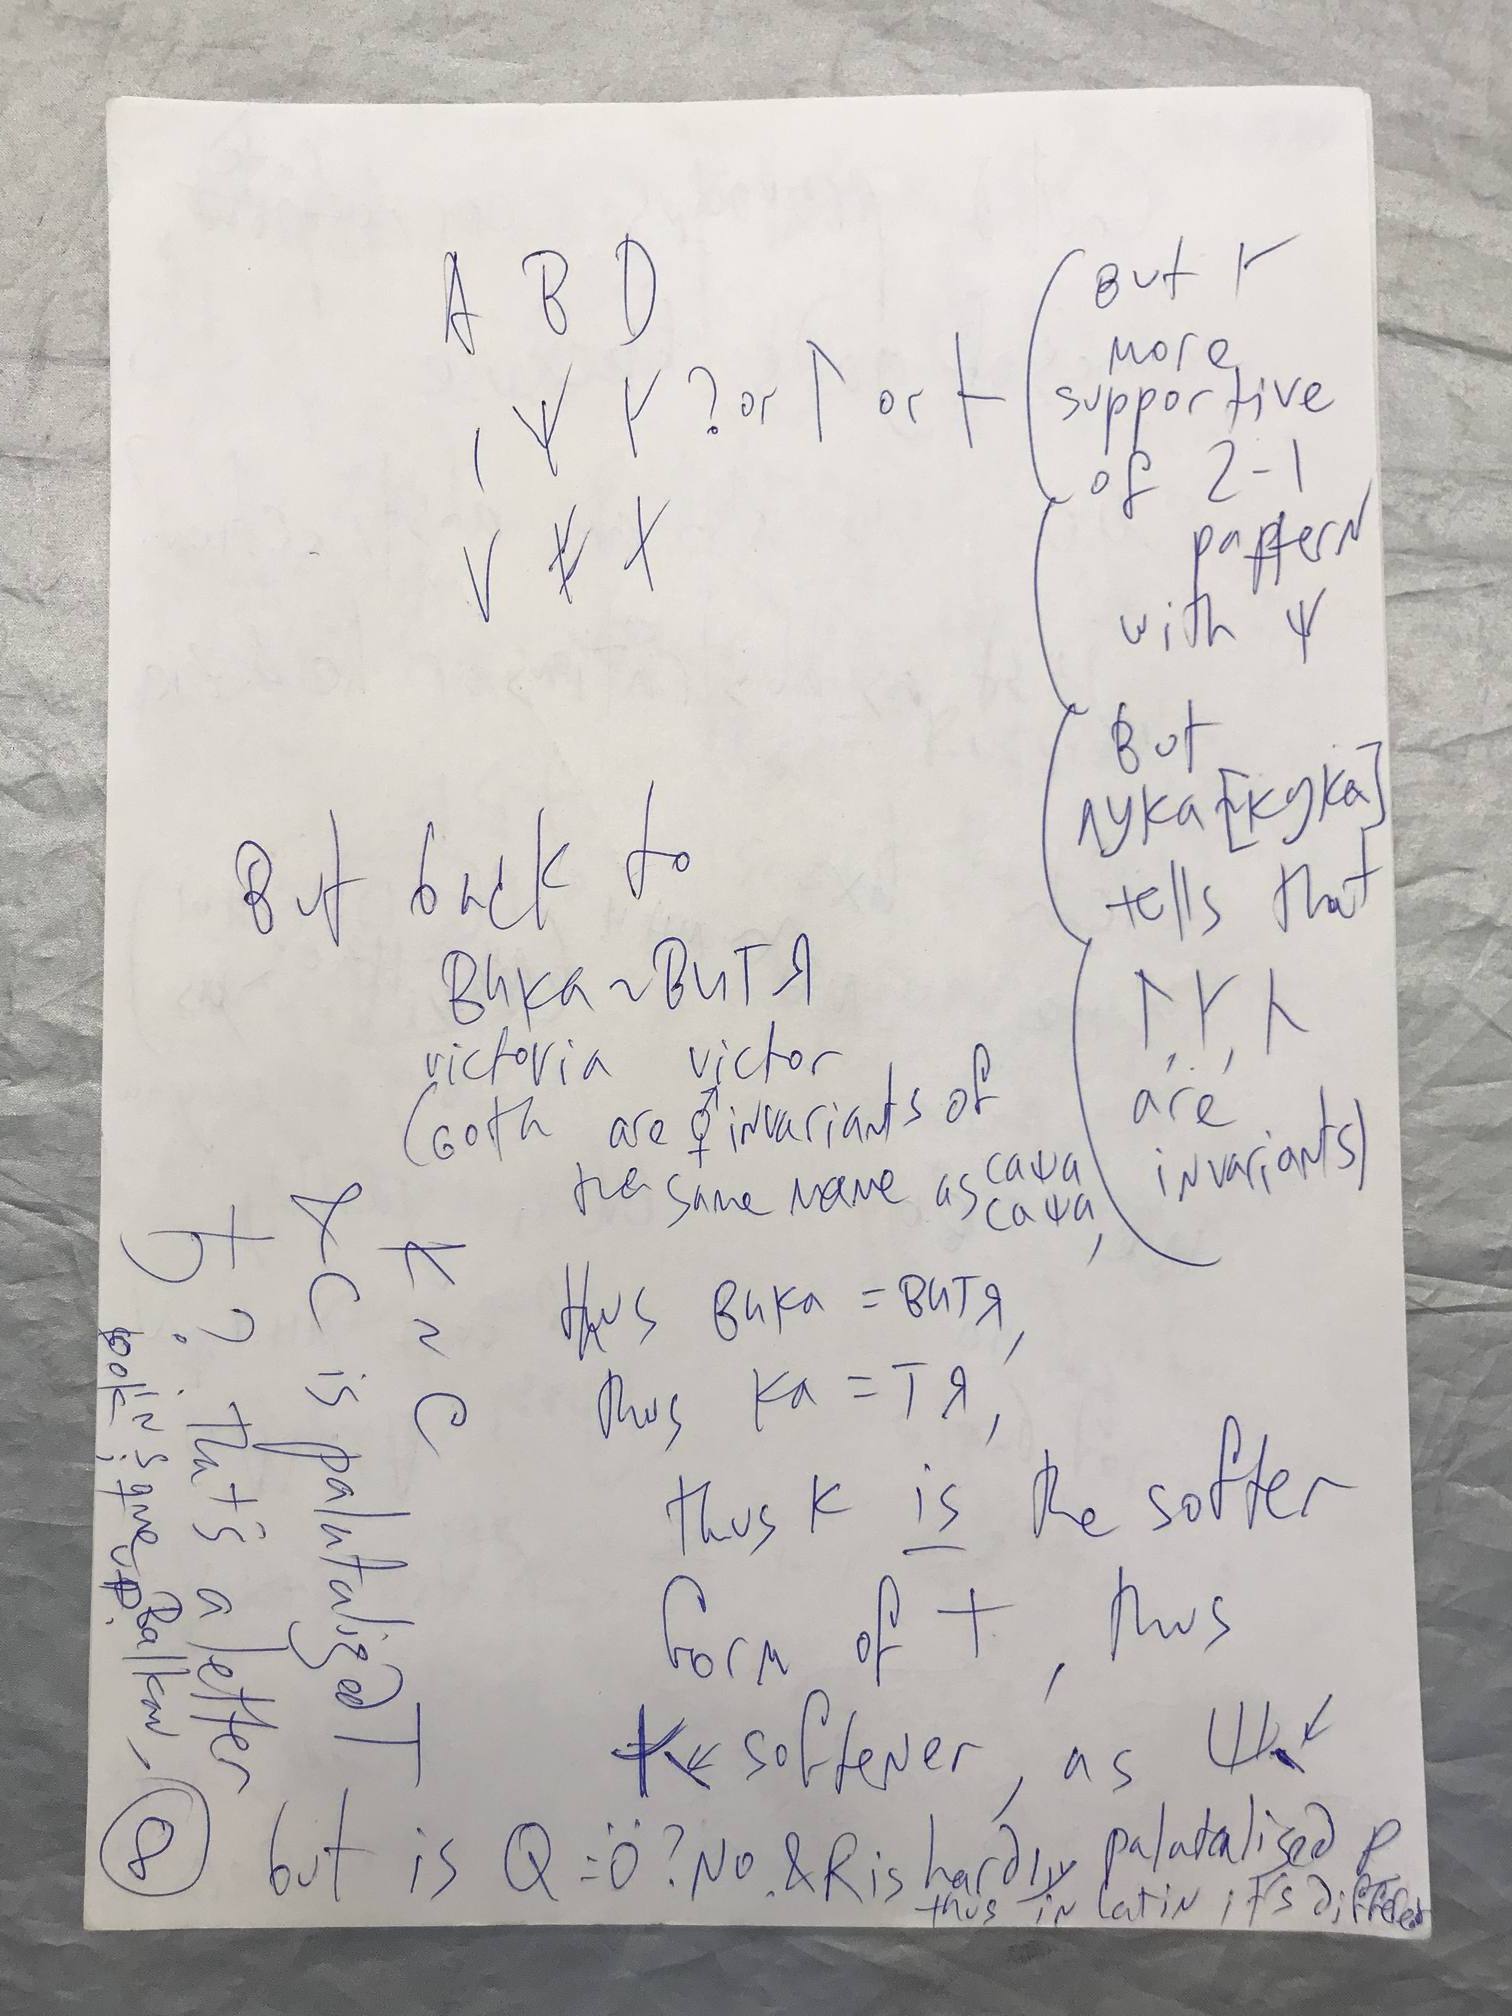 A B D
, Ψ ⊬ ? or ↾ or ⊢
V X
But ⊦
more
supportive
of 2-1
pattern
with Ψ
But
лука [~кука]
tells that
are
invariants)
But back to
Вика ~ Витя
victoria victor
(both are ⚥ invariants of
the same name as саша
саша,
thus Вика = Витя,
thus ка = Тя,
thus K is the softer
form of t, thus
softener, as
K ~ C
& C is palatalized T
? that's a letter
in some Balkan,
look it up.
8
but is Q = Ö? No. & R is hardly palatalised P
thus in latin it's different